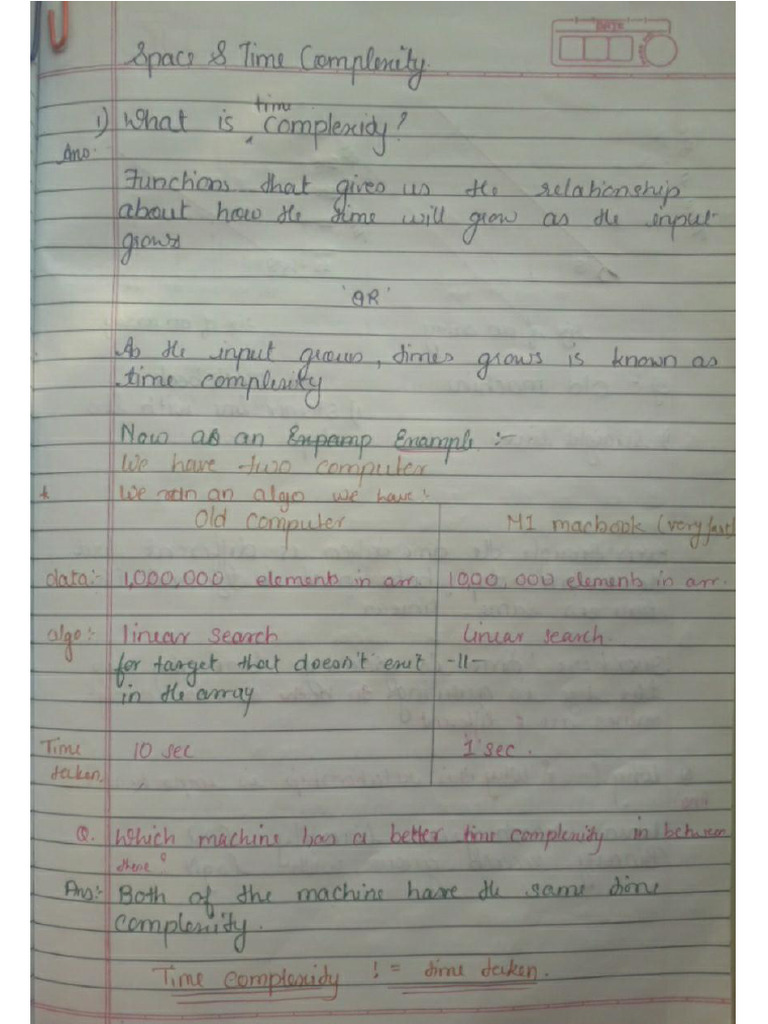 Space & Time Complexity.
1) What is time complexidy?
Ans.
Functions that gives us the relationship
about how the time will grow as the input
grows
'OR'
As the input grows, times grows is known as
time complexity
Now as an Example :-
We have two computer
* We run an algo we have:
Old computer M1 macbook (very fast)
data:- 1,000,000 elements in arr. 1000,000 elements in arr.
algo:- linear search Linear search.
for target that doesn't exit -11-
in the array
Time 10 sec 1 sec.
taken.
Q. Which machine has a better time complexity in between
these?
Ans:- Both of the machine have the same time
complexity.
Time complexidy != time taken.